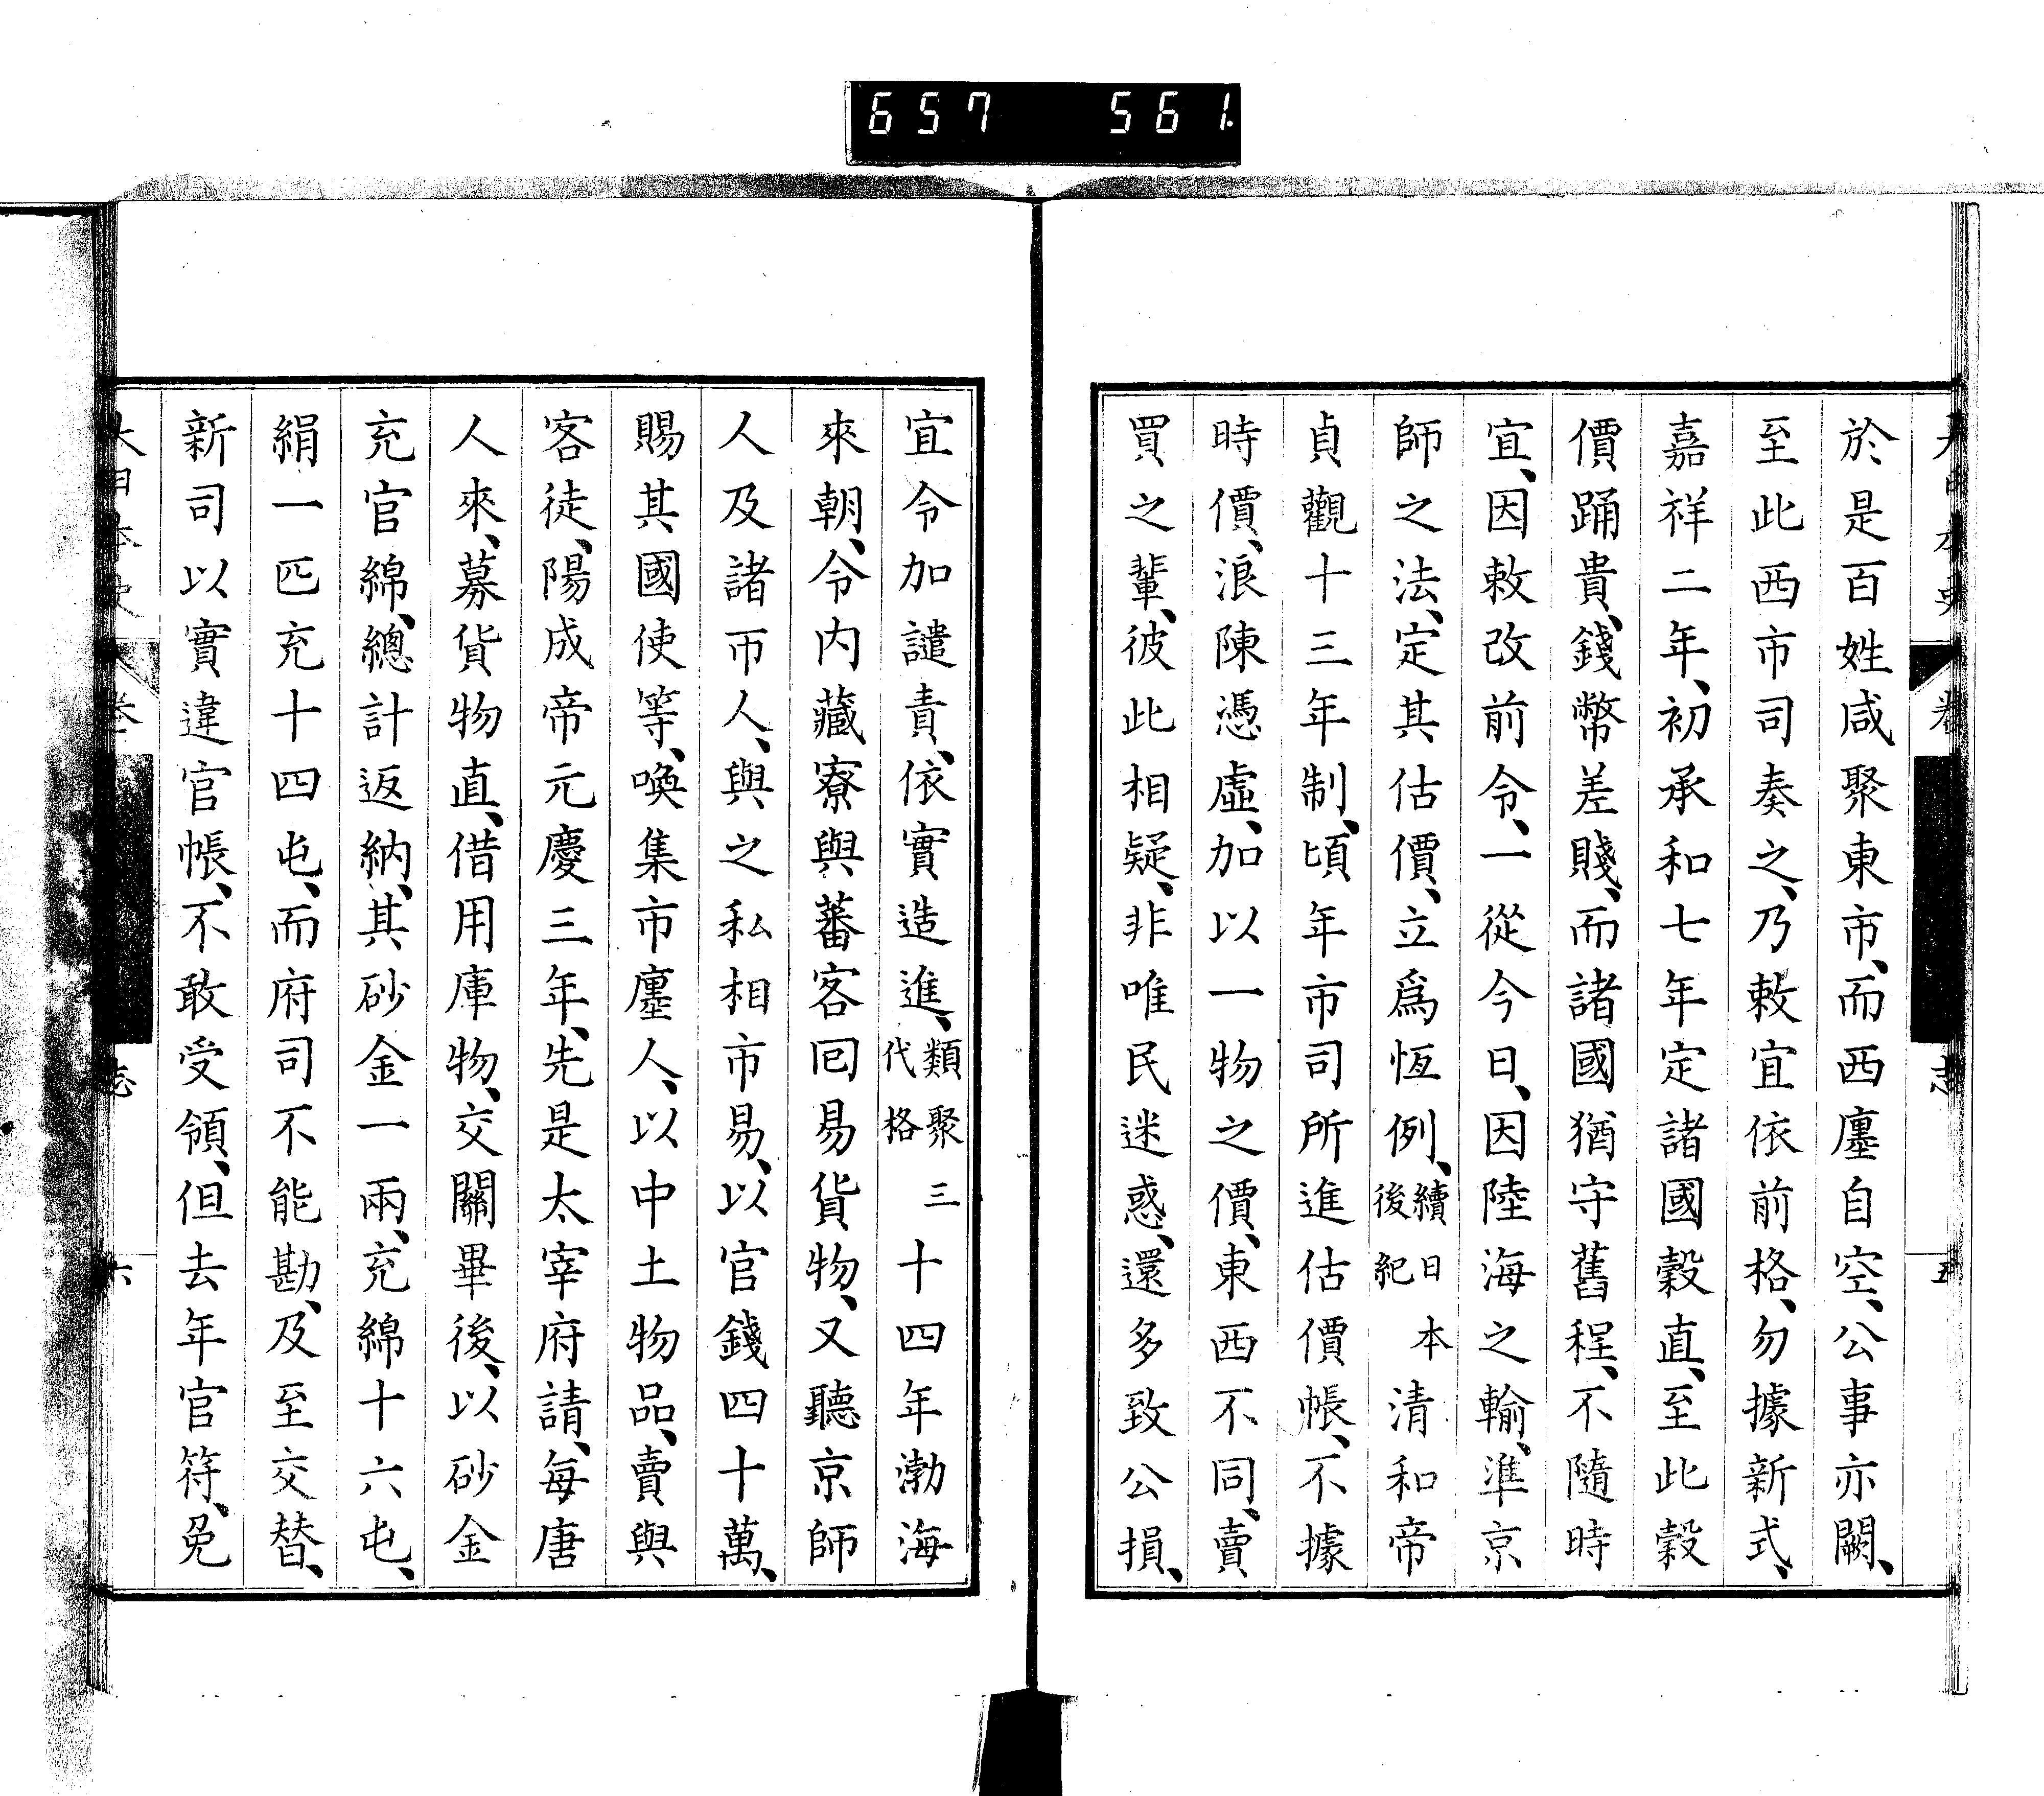 657 561
大日本史 卷 志 五
於是百姓咸聚東市、而西廛自空、公事亦闕、
至此西市司奏之、乃敕宜依前格、勿據新式、
嘉祥二年、初承和七年定諸國穀直、至此穀
價踊貴、錢幣差賤、而諸國猶守舊程、不隨時
宜、因敕改前令、一從今日、因陸海之輸、準京
師之法、定其估價、立爲恆例、續日本後紀 清和帝
貞觀十三年制、頃年市司所進估價帳、不據
時價、浪陳憑虛、加以一物之價、東西不同、賣
買之輩、彼此相疑、非唯民迷惑、還多致公損、
宜令加譴責、依實造進、類聚三代格 十四年渤海
來朝、令内藏寮與蕃客囘易貨物、又聽京師
人及諸市人、與之私相市易、以官錢四十萬、
賜其國使等、喚集市廛人、以中土物品、賣與
客徒、陽成帝元慶三年、先是太宰府請、每唐
人來、募貨物直、借用庫物、交關畢後、以砂金
充官綿、總計返納、其砂金一兩、充綿十六屯、
絹一匹充十四屯、而府司不能勘、及至交替、
新司以實違官帳、不敢受領、但去年官符、免
大日本史 卷 志 六